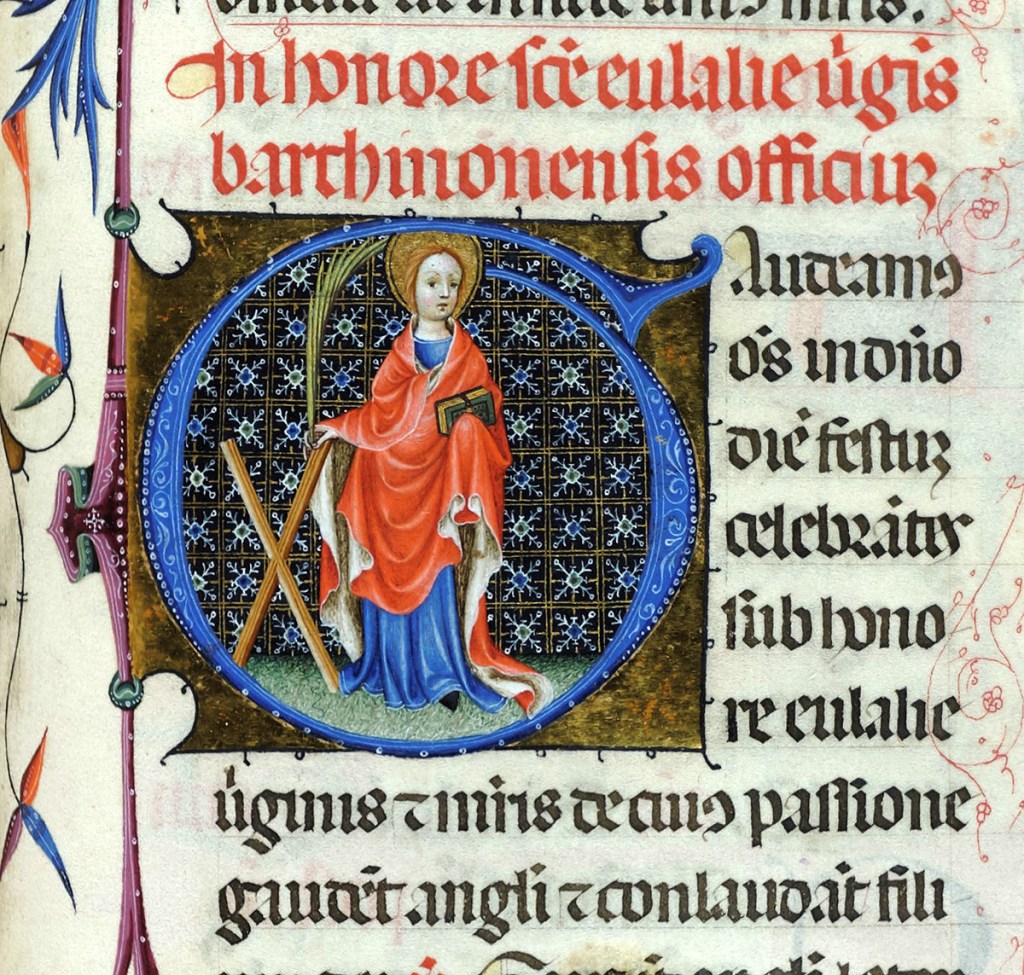 In honore sc̄e eulalie ūgīs
barchinonensis officiuȝ
Gaudeamus
oēs in dn̄o
diē festuȝ
celebrātes
sub hono
re eulalie
ūginis ⁊ mr̄is de cuiꝰ passione
gaudēt angl̄i ⁊ conlaudāt fili